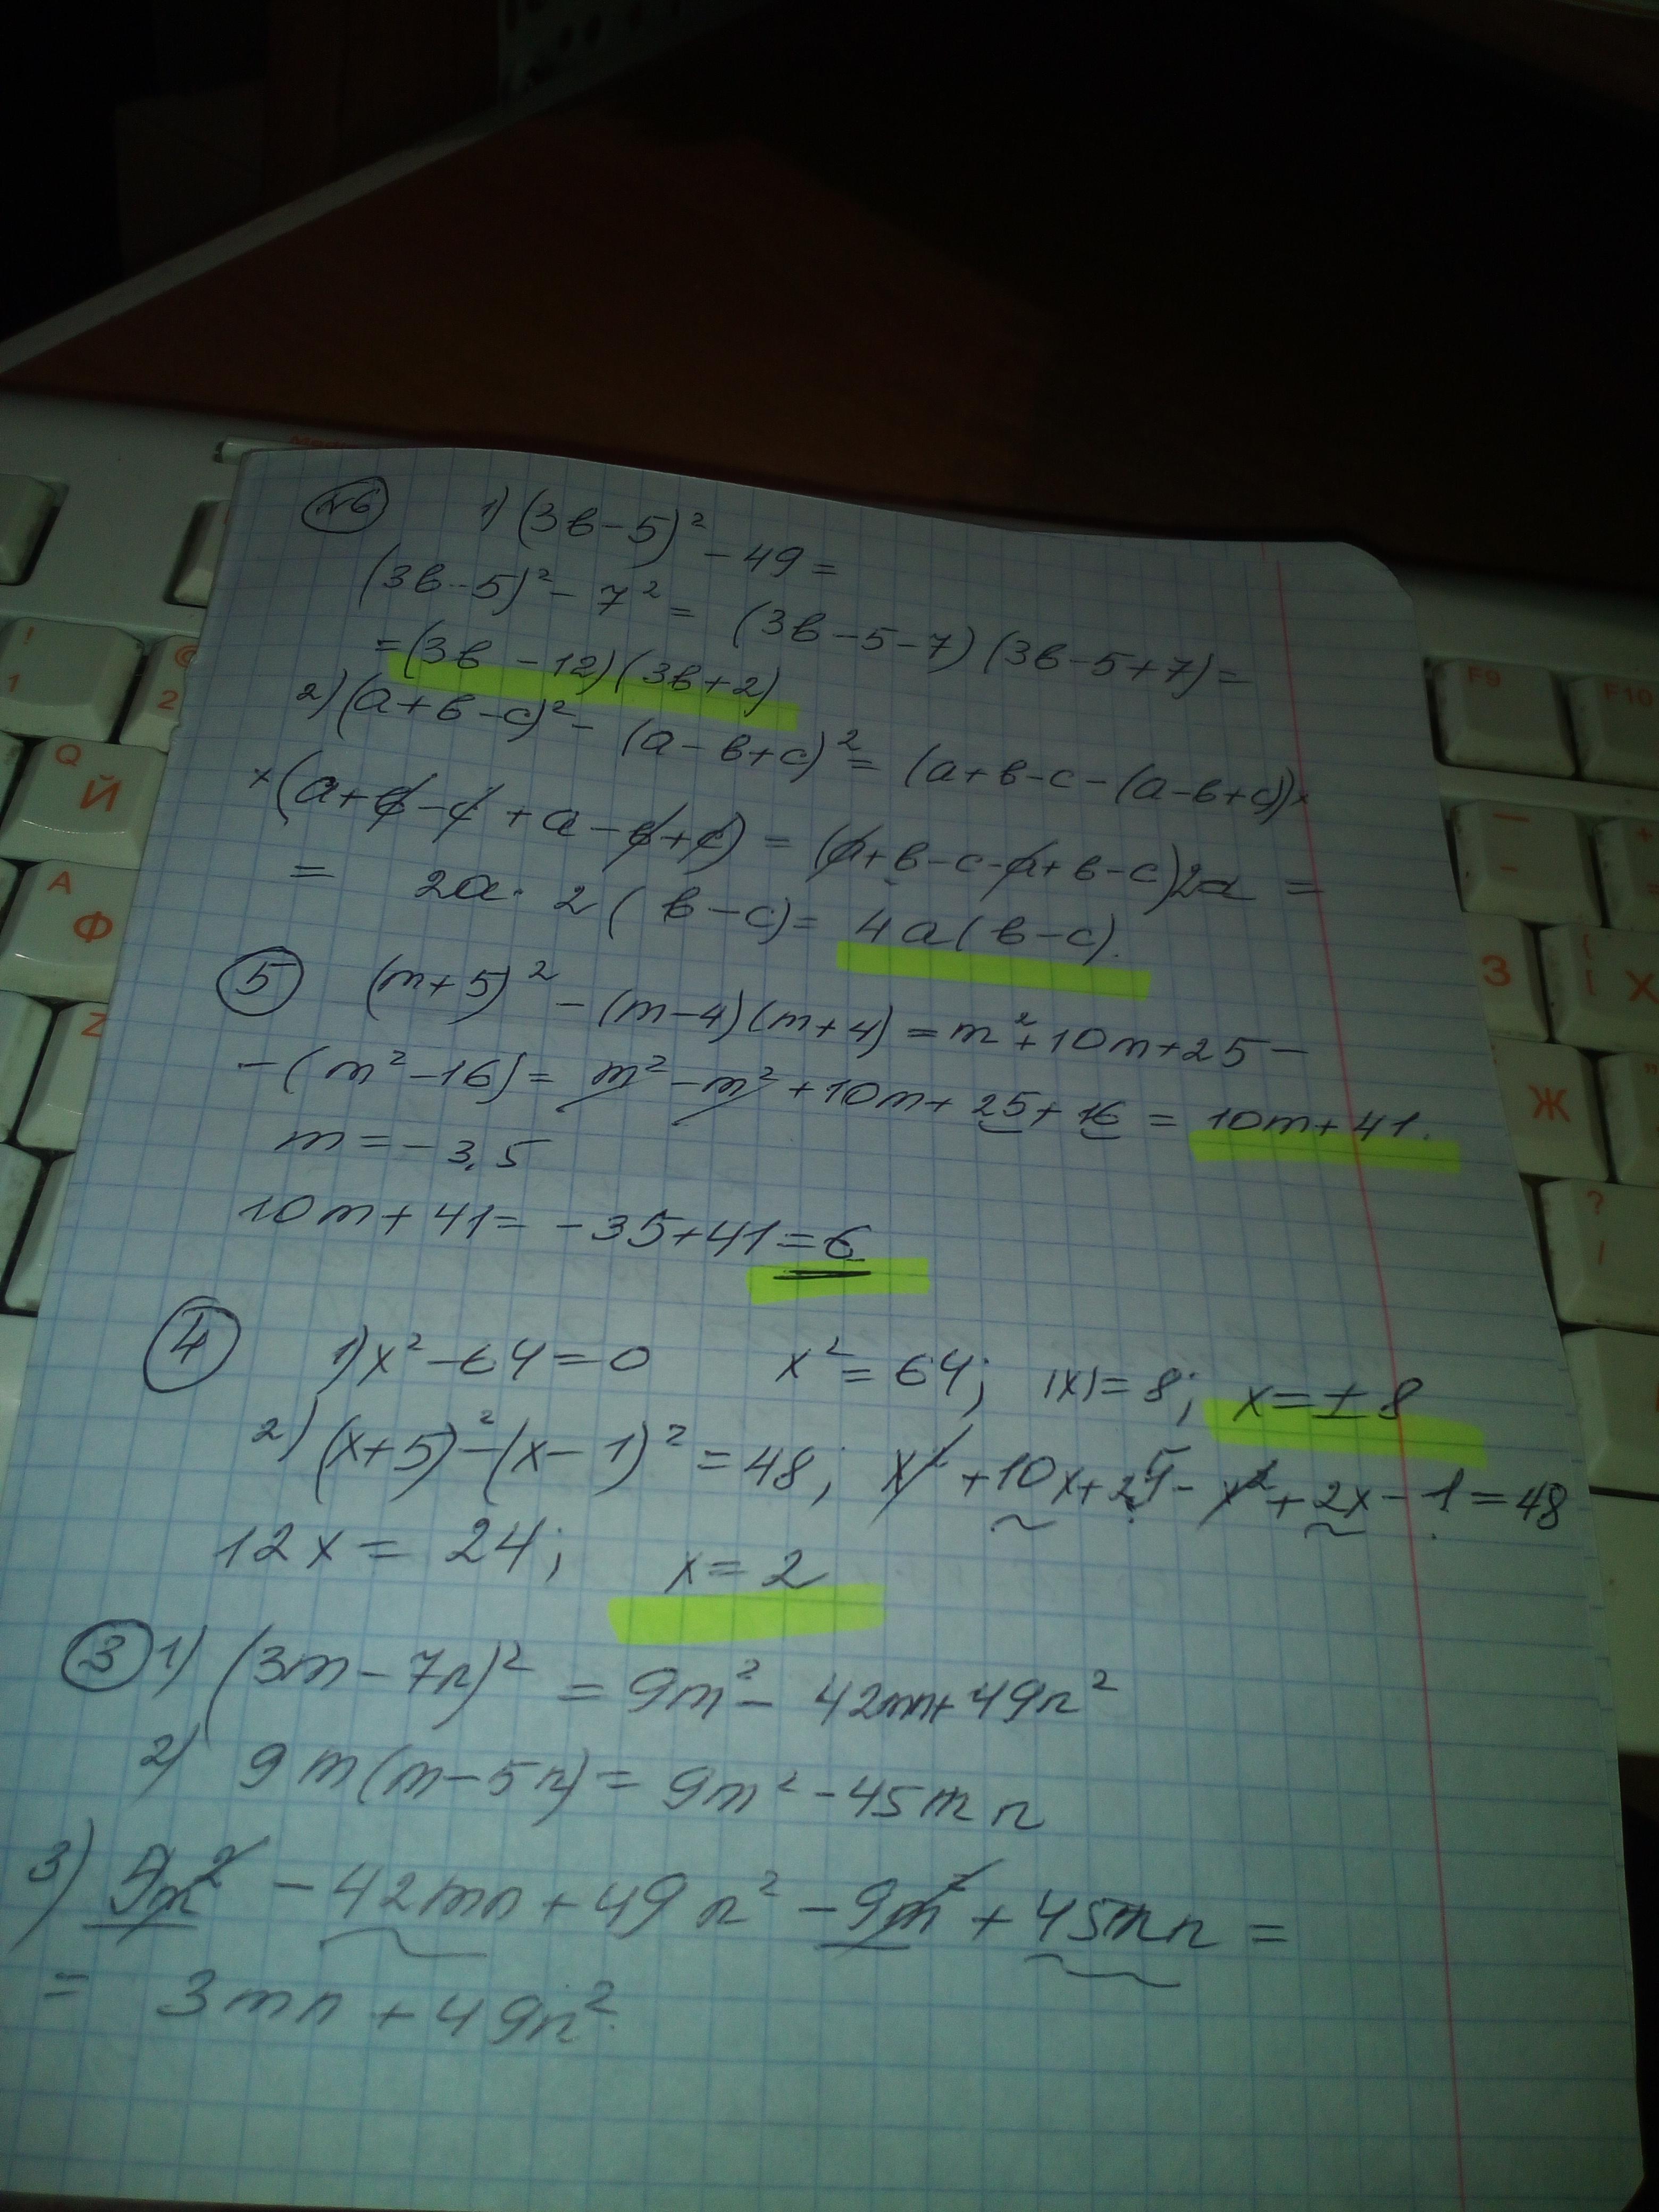 №6 1) (3в-5)² - 49 =
(3в-5)² - 7² = (3в-5-7)(3в-5+7) =
= (3в -12)(3в+2)
2) (а+в-с)² - (а-в+с)² = (а+в-с-(а-в+с))×
×(а+в-с+а-в+с) = (а+в-с-а+в-с)2а =
= 2а · 2(в-с) = 4а(в-с).
5 (m+5)² - (m-4)(m+4) = m²+10m+25 -
- (m²-16) = m² - m² + 10m + 25 + 16 = 10m+41.
m = -3,5
10m+41 = -35+41 = 6
4 1) x² - 64 = 0 x² = 64; |x| = 8; x = ±8
2) (x+5)² - (x-1)² = 48; x² + 10x + 25 - x² + 2x - 1 = 48
12x = 24; x = 2
3 1) (3m - 7n)² = 9m² - 42mn + 49n²
2) 9m(m-5n) = 9m² - 45mn
3) 9m² - 42mn + 49n² - 9m² + 45mn =
= 3mn + 49n².
! 1
@ 2
Q Й
A Ф
Z
F9
F10
З
{ [ Х
Ж
? /